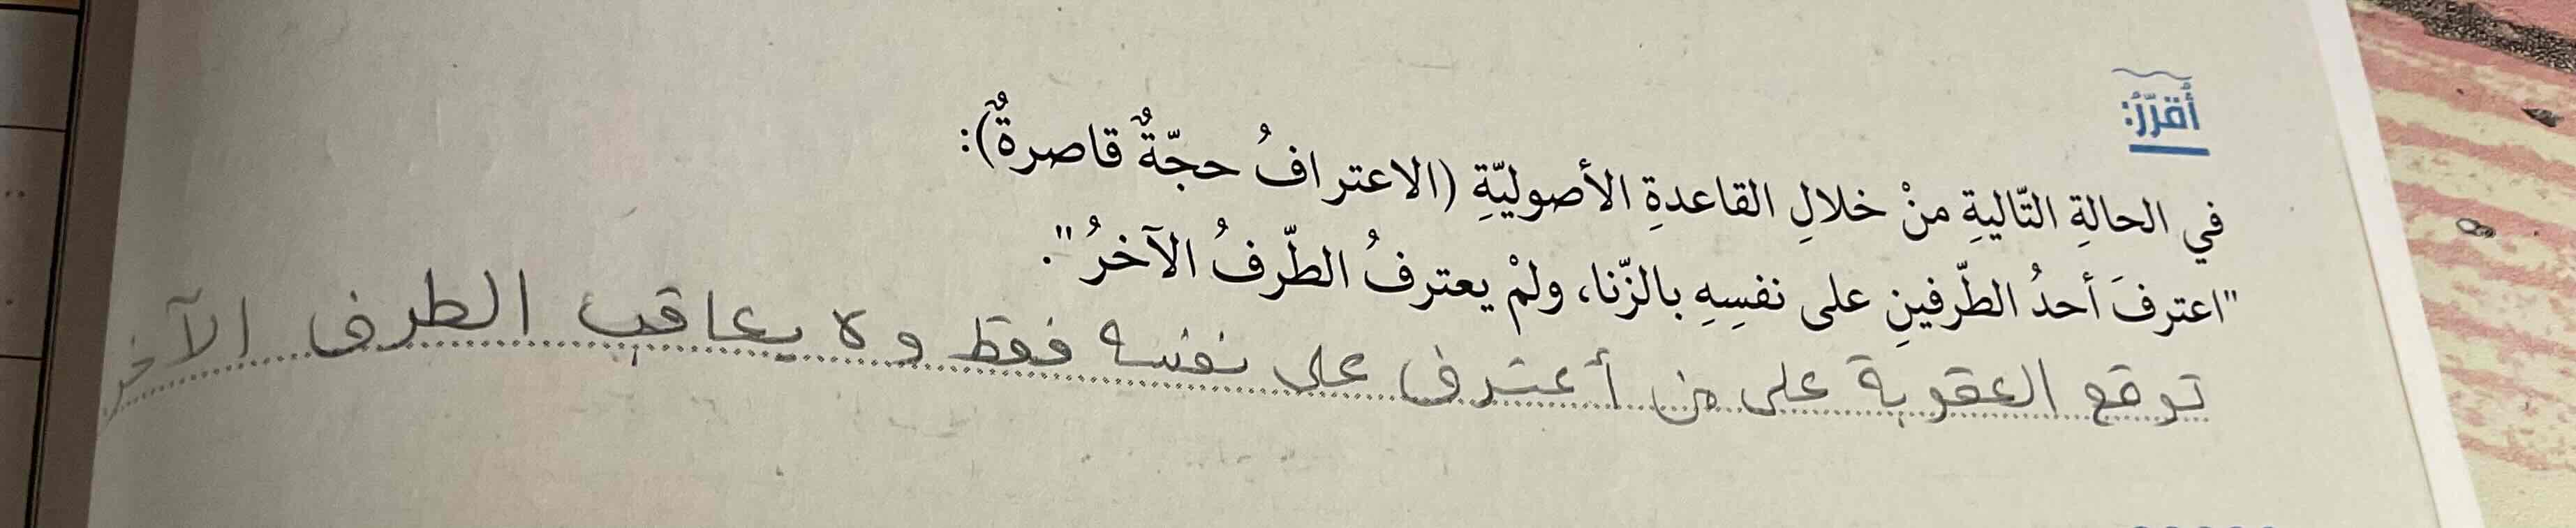 أُقرّرُ:
في الحالةِ التّاليةِ منْ خلالِ القاعدةِ الأصوليّةِ (الاعترافُ حجّةٌ قاصرةٌ):
"اعترفَ أحدُ الطّرفينِ على نفسِهِ بالزّنا، ولمْ يعترفُ الطّرفُ الآخرُ".
توقع العقوبة على من أعترف على نفسه فقط ولا يعاقب الطرف الآخر